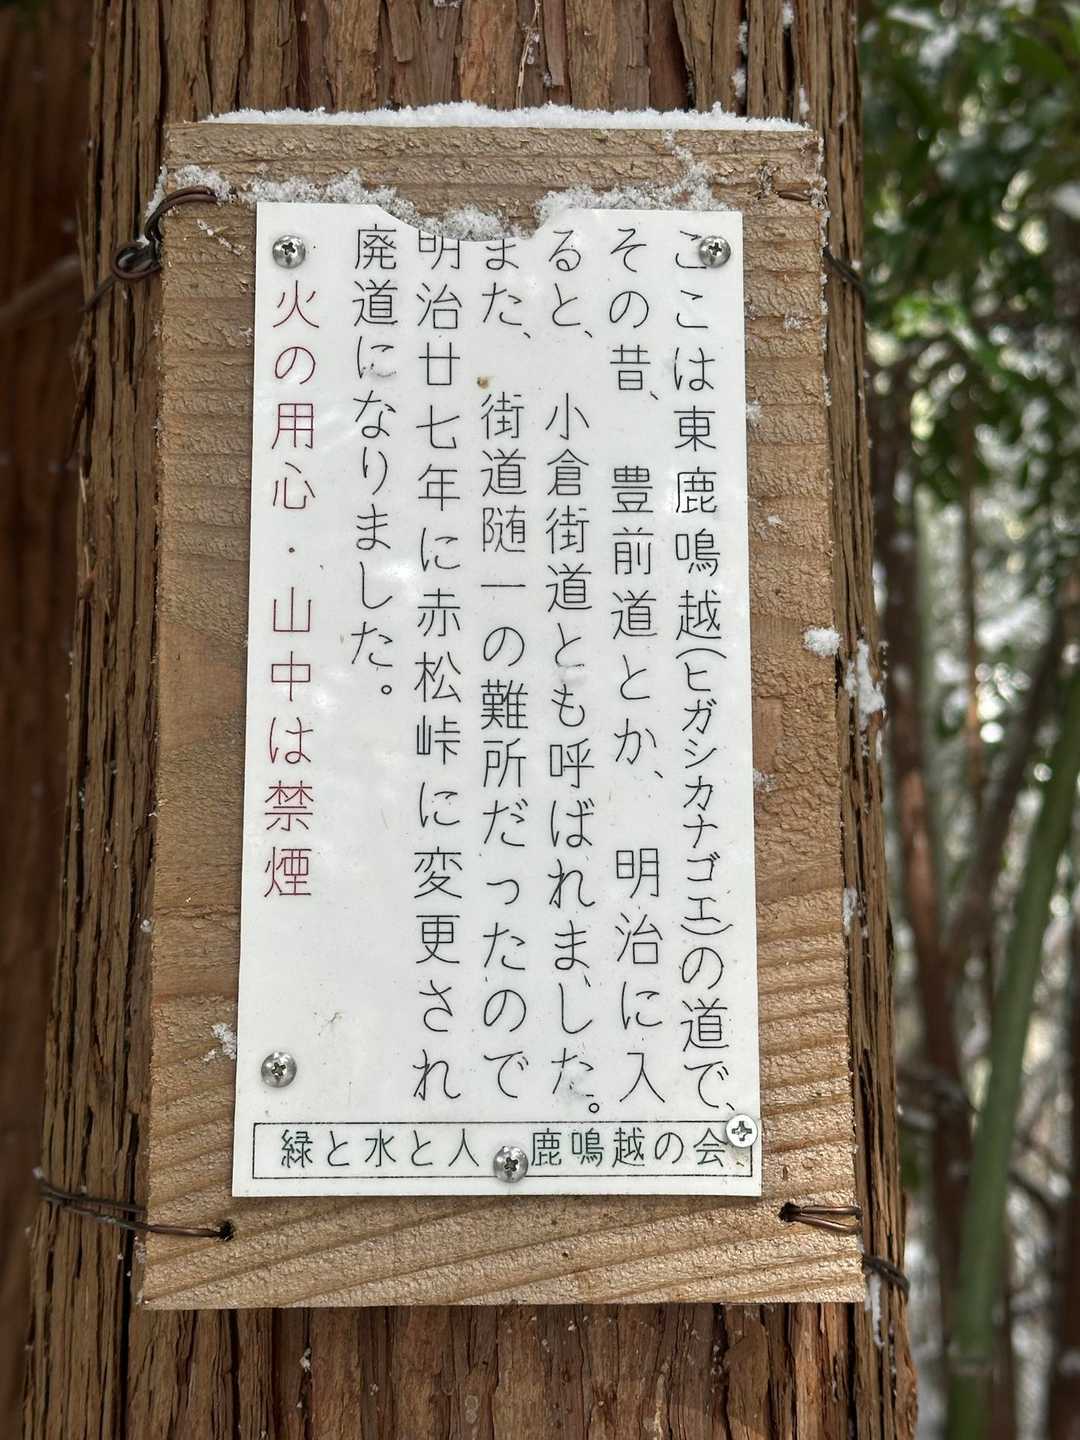 ここは東鹿鳴越(ヒガシカナゴエ)の道で、
その昔、豊前道とか、明治に入
ると、小倉街道とも呼ばれました。
また、街道随一の難所だったので
明治廿七年に赤松峠に変更され
廃道になりました。
火の用心・山中は禁煙
緑と水と人 鹿鳴越の会